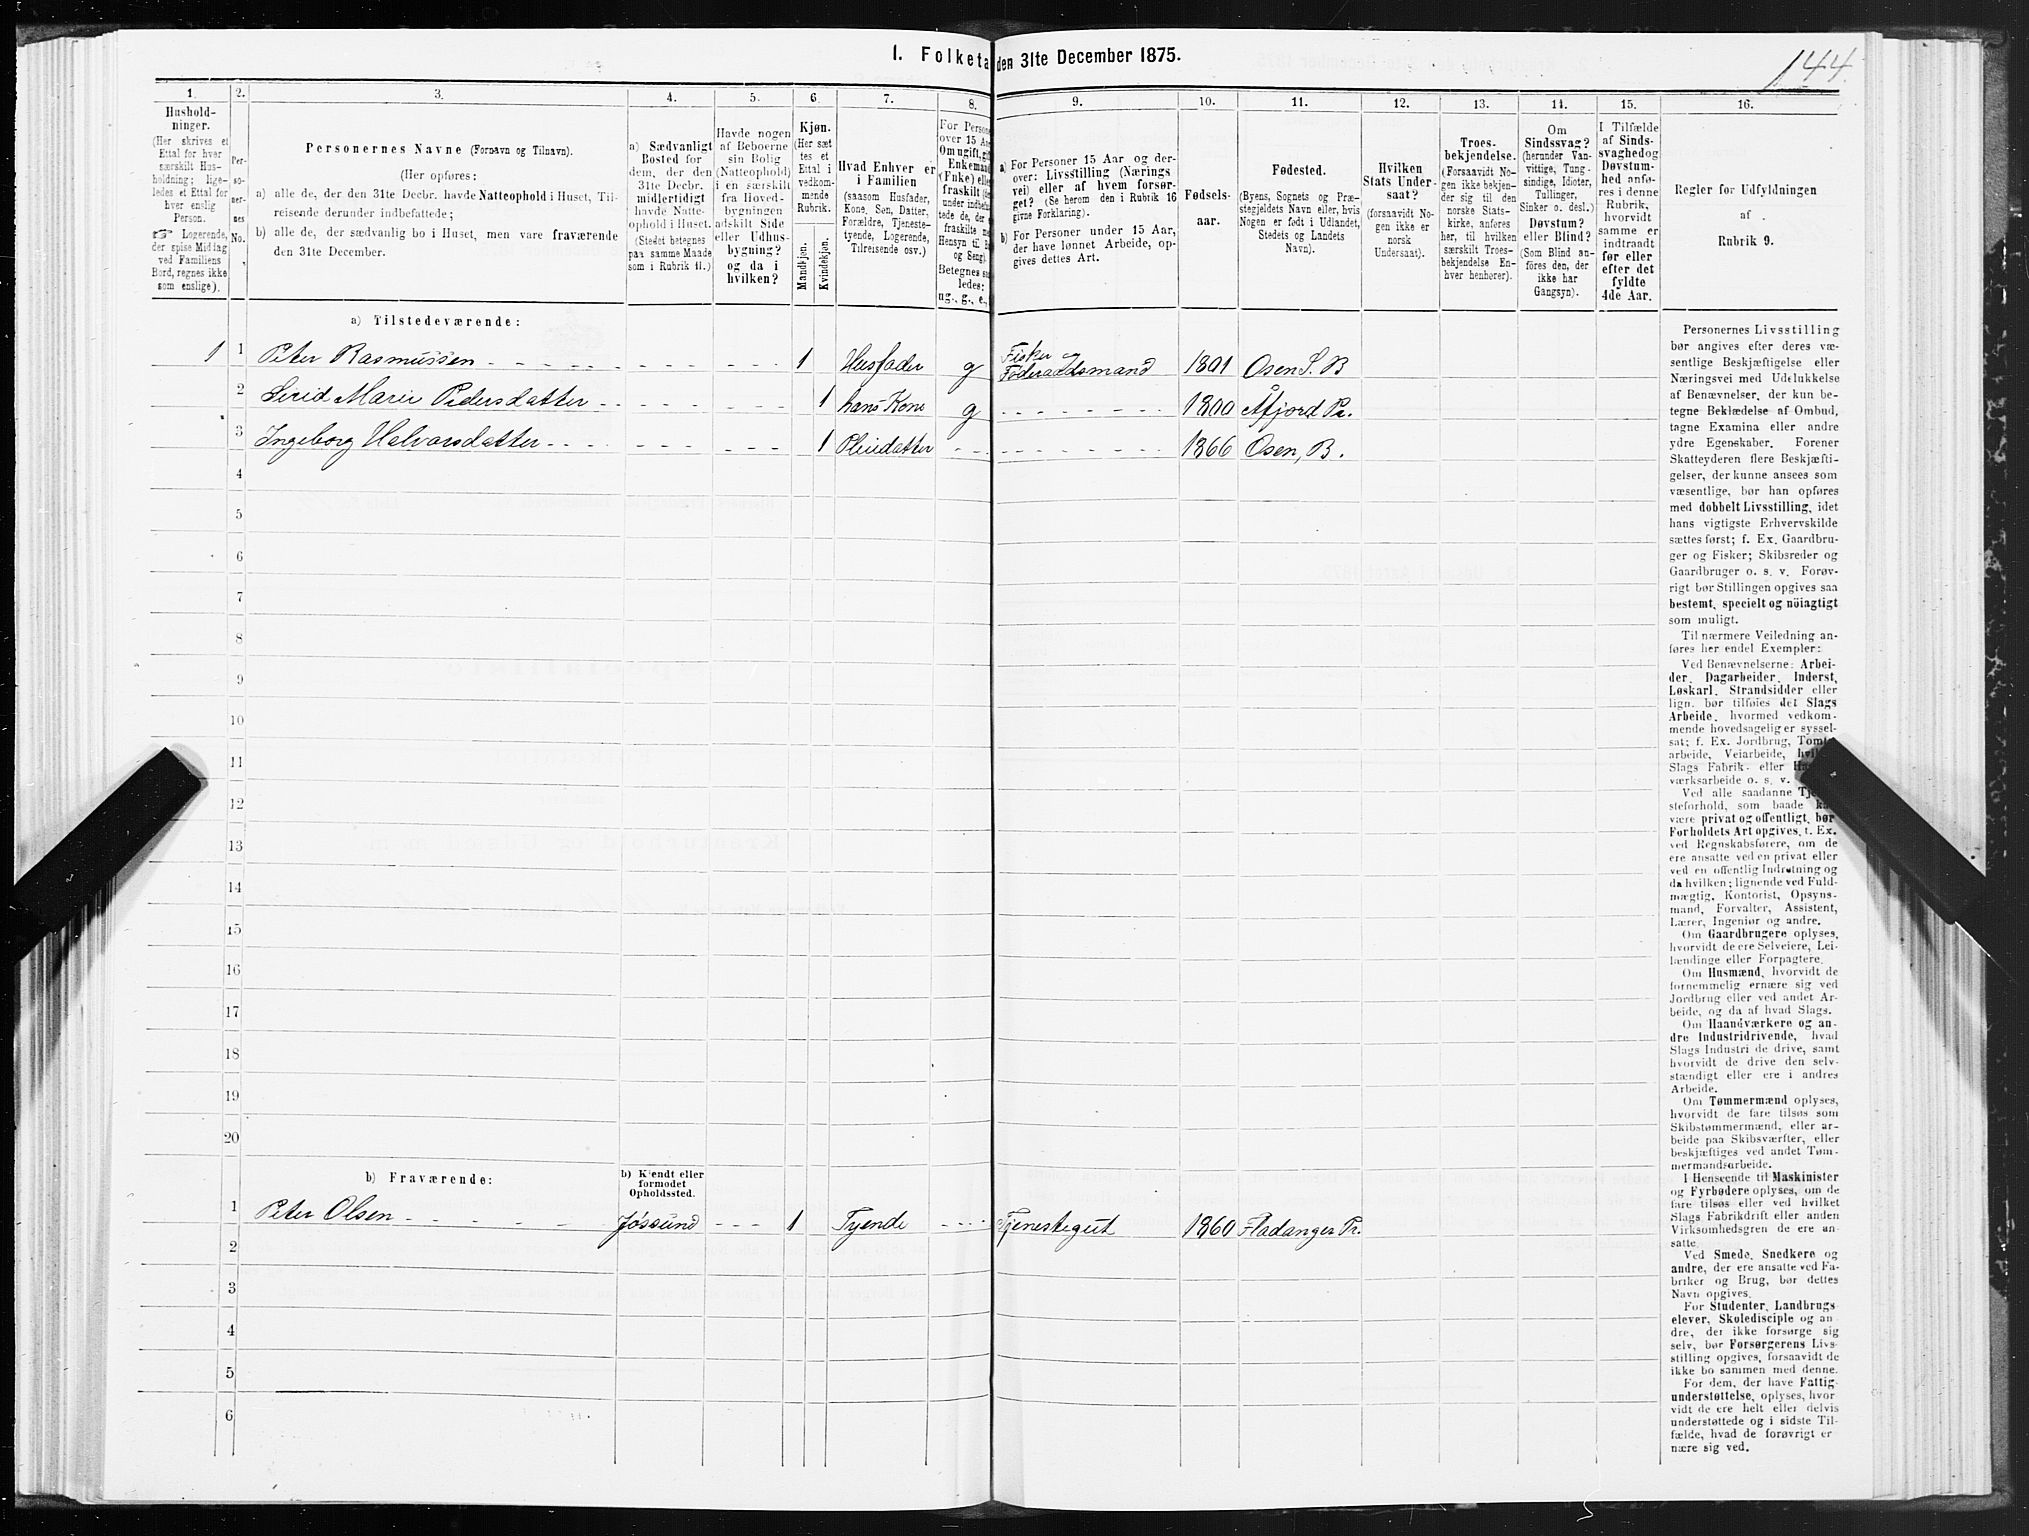 I. Folketa den 31te December 1875.
144.
1.
Hushold-
ninger.
(Her skrives et
Ettal for hver
særskilt Hus-
holdning; lige-
ledes et Ettal for
hver enslig
Person.
☞ Logerende,
der spise Middag
ved Familiens
Bord, regnes ikke
som enslige).
2.
Per-
so-
ner-
nes
No.
3.
Personernes Navne (Fornavn og Tilnavn).
(Her opføres:
a) alle de, der den 31te Decbr. havde Natteophold i Huset, Til-
reisende derunder indbefattede;
b) alle de, der sædvanlig bo i Huset, men vare fraværende
den 31te December.
4.
a) Sædvanligt
Bosted for
dem, der den
31te Decbr.
midlertidigt
havde Natte-
ophold i Huset.
(Stedet betegnes
paa samme Maade
som i Rubrik 11.)
5.
Havde nogen
af Beboerne
sin Bolig
(Natteophold)
i en særskilt
fra Hoved-
bygningen
adskilt Side
eller Udhus-
bygning?
og da i
hvilken?
6.
Kjøn.
(Her sæt-
tes et
Ettal i
vedkom-
mende
Rubrik.
Mandkjøn.
Kvindekjøn.
7.
Hvad Enhver er
i Familien
(saasom Husfader,
Kone, Søn, Datter,
Forældre, Tjeneste-
tyende, Logerende,
Tilreisende osv.)
8.
For Persone
over 15 Aa
Om ugift, gif
Enkemand
(Enke) elle
fraskilt
9.
a) For Personer 15 Aar og der-
over: Livsstilling (Nærings
vei) eller af hvem forsør-
get? (Se herom den i Rubrik 16
givne Forklaring).
b) For Personer under 15 Aar,
der have lønnet Arbeide, op-
gives dettes Art.
10.
Fødsels-
aar.
11.
Fødested.
(Byens, Sognets og Præ-
stegjeldets Navn eller, hvis
Nogen er født i Udlandet,
Stedets og Landets
Navn).
12.
Hvilken
Stats Under-
saat?
(forsaavidt No-
gen ikke er
norsk
Undersaat).
13.
Troes-
bekjendelse.
(Forsaavidt No-
gen ikke bekjen-
der sig til den
norske Stats-
kirke, anføres
her, til hvilken
særskilt Troes-
bekjendelse En-
hver henhører).
14.
Om
Sindssvag?
(herunder Van-
vittige, Tung-
sindige, Idioter,
Tullinger,
Sinker o. desl.)
Døvstum?
eller Blind?
(Som Blind an-
føres den, der
ikke har
Gangsyn).
15.
I Tilfælde
af Sinds-
svaghed og
Døvstum-
hed anfø-
res i denne
Rubrik,
hvorvidt
samme er
indtraadt
før eller
efter det
fyldte
4de Aar.
16.
Regler for Udfyldningen
af
Rubrik 9.
a) Tilstedeværende:
1 1 Peter Rasmussen 1 Husfader g Fisker og Føderaadsmand 1801 Osen S. B
2 Sirid Marie Pedersdatter 1 hans Kone g 1800 Åfjord Pr.
3 Ingeborg Halvorsdatter 1 Pleiedatter 1866 Osen, B.
4
5
6
7
8
9
10
11
12
13
14
15
16
17
18
19
20
b) Fraværende:
b) Kjendt eller
formodet
Opholdssted.
1 Peter Olsen Jøssund 1 Tyende Tjenestegut 1860 Fladanger Pr.
2
3
4
5
6
Personernes Livsstilling
bør angives efter deres væ-
sentlige Beskjæftigelse eller
Næringsvei med Udelukkelse
af Benævnelser, der kun be-
tegne Beklædelse af Ombud,
tagne Examina eller andre
ydre Egenskaber. Forener
Skatteyderen flere Beskjæfti-
gelser, der kunne ansees som
væsentlige, bør han opføres
med dobbelt Livsstilling, idet
hans vigtigste Erhvervskilde
sættes først; f. Ex. Gaardbru-
ger og Fisker; Skibsreder og
Gaardbruger o. s. v. Forøv-
rigt bør Stillingen opgives saa
bestemt, specielt og nöiagtigt
som muligt.
Til nærmere Veiledning an-
føres her endel Exempler:
Ved Benævnelserne: Arbei-
der, Dagarbeider, Inderst,
Løskarl, Strandsidder eller
lign. bør tilføies det Slags
Arbeide, hvormed vedkom-
mende hovedsagelig er syssel-
sat; f. Ex. Jordbrug, Tomte-
arbeide, Veiarbeide,
Slags Fabrik- eller
værksarbeide o. s. v.
Ved alle saadanne
steforhold, som baade
være privat og offentligt, bør
Forholdets Art opgives, f. Ex.
ved Regnskabsførere, om de
ere ansatte ved en privat eller
ved en offentlig Indretning og
da hvilken; lignende ved Fuld-
mægtig, Kontorist, Opsyns-
mand, Forvalter, Assistent,
Lærer, Ingeniør og andre.
Om Gaardbrugere oplyses,
hvorvidt de ere Selveiere, Lei-
lændinge eller Forpagtere.
Om Husmænd, hvorvidt de
fornemmelig ernære sig ved
Jordbrug eller ved andet Ar-
beide, og da af hvad Slags.
Om Haandværkere og an-
dre Industridrivende, hvad
Slags Industri de drive, samt
hvorvidt de drive den selv-
stændigt eller ere i andres
Arbeide.
Om Tømmermænd oplyses,
hvorvidt de fare tilsøs som
Skibstømmermænd, eller ar-
beide paa Skibsværfter, eller
beskjæftiges ved andet Tøm-
mermandsarbeide.
I Henseende til Maskinister
og Fyrbødere oplyses, om de
fare tilsøs eller ved hvilket
Slags Fabrikdrift eller anden
Virksomhedsgren de ere an-
satte.
Ved Smede, Snedkere og
andre, der ere ansatte ved Fa-
briker og Brug, bør dettes
Navn opgives.
For Studenter, Landbrugs
elever, Skoledisciple og an
dre, der ikke forsørge sig
selv, bør Forsørgerens Livs-
stilling opgives, forsaavidt de
ikke bo sammen med denne.
For dem, der have Fattig-
understøttelse, oplyses, hvor
vidt de ere helt eller delvis
understøttede og i sidste Til-
fælde, hvad de forøvrigt er
nære sig ved.